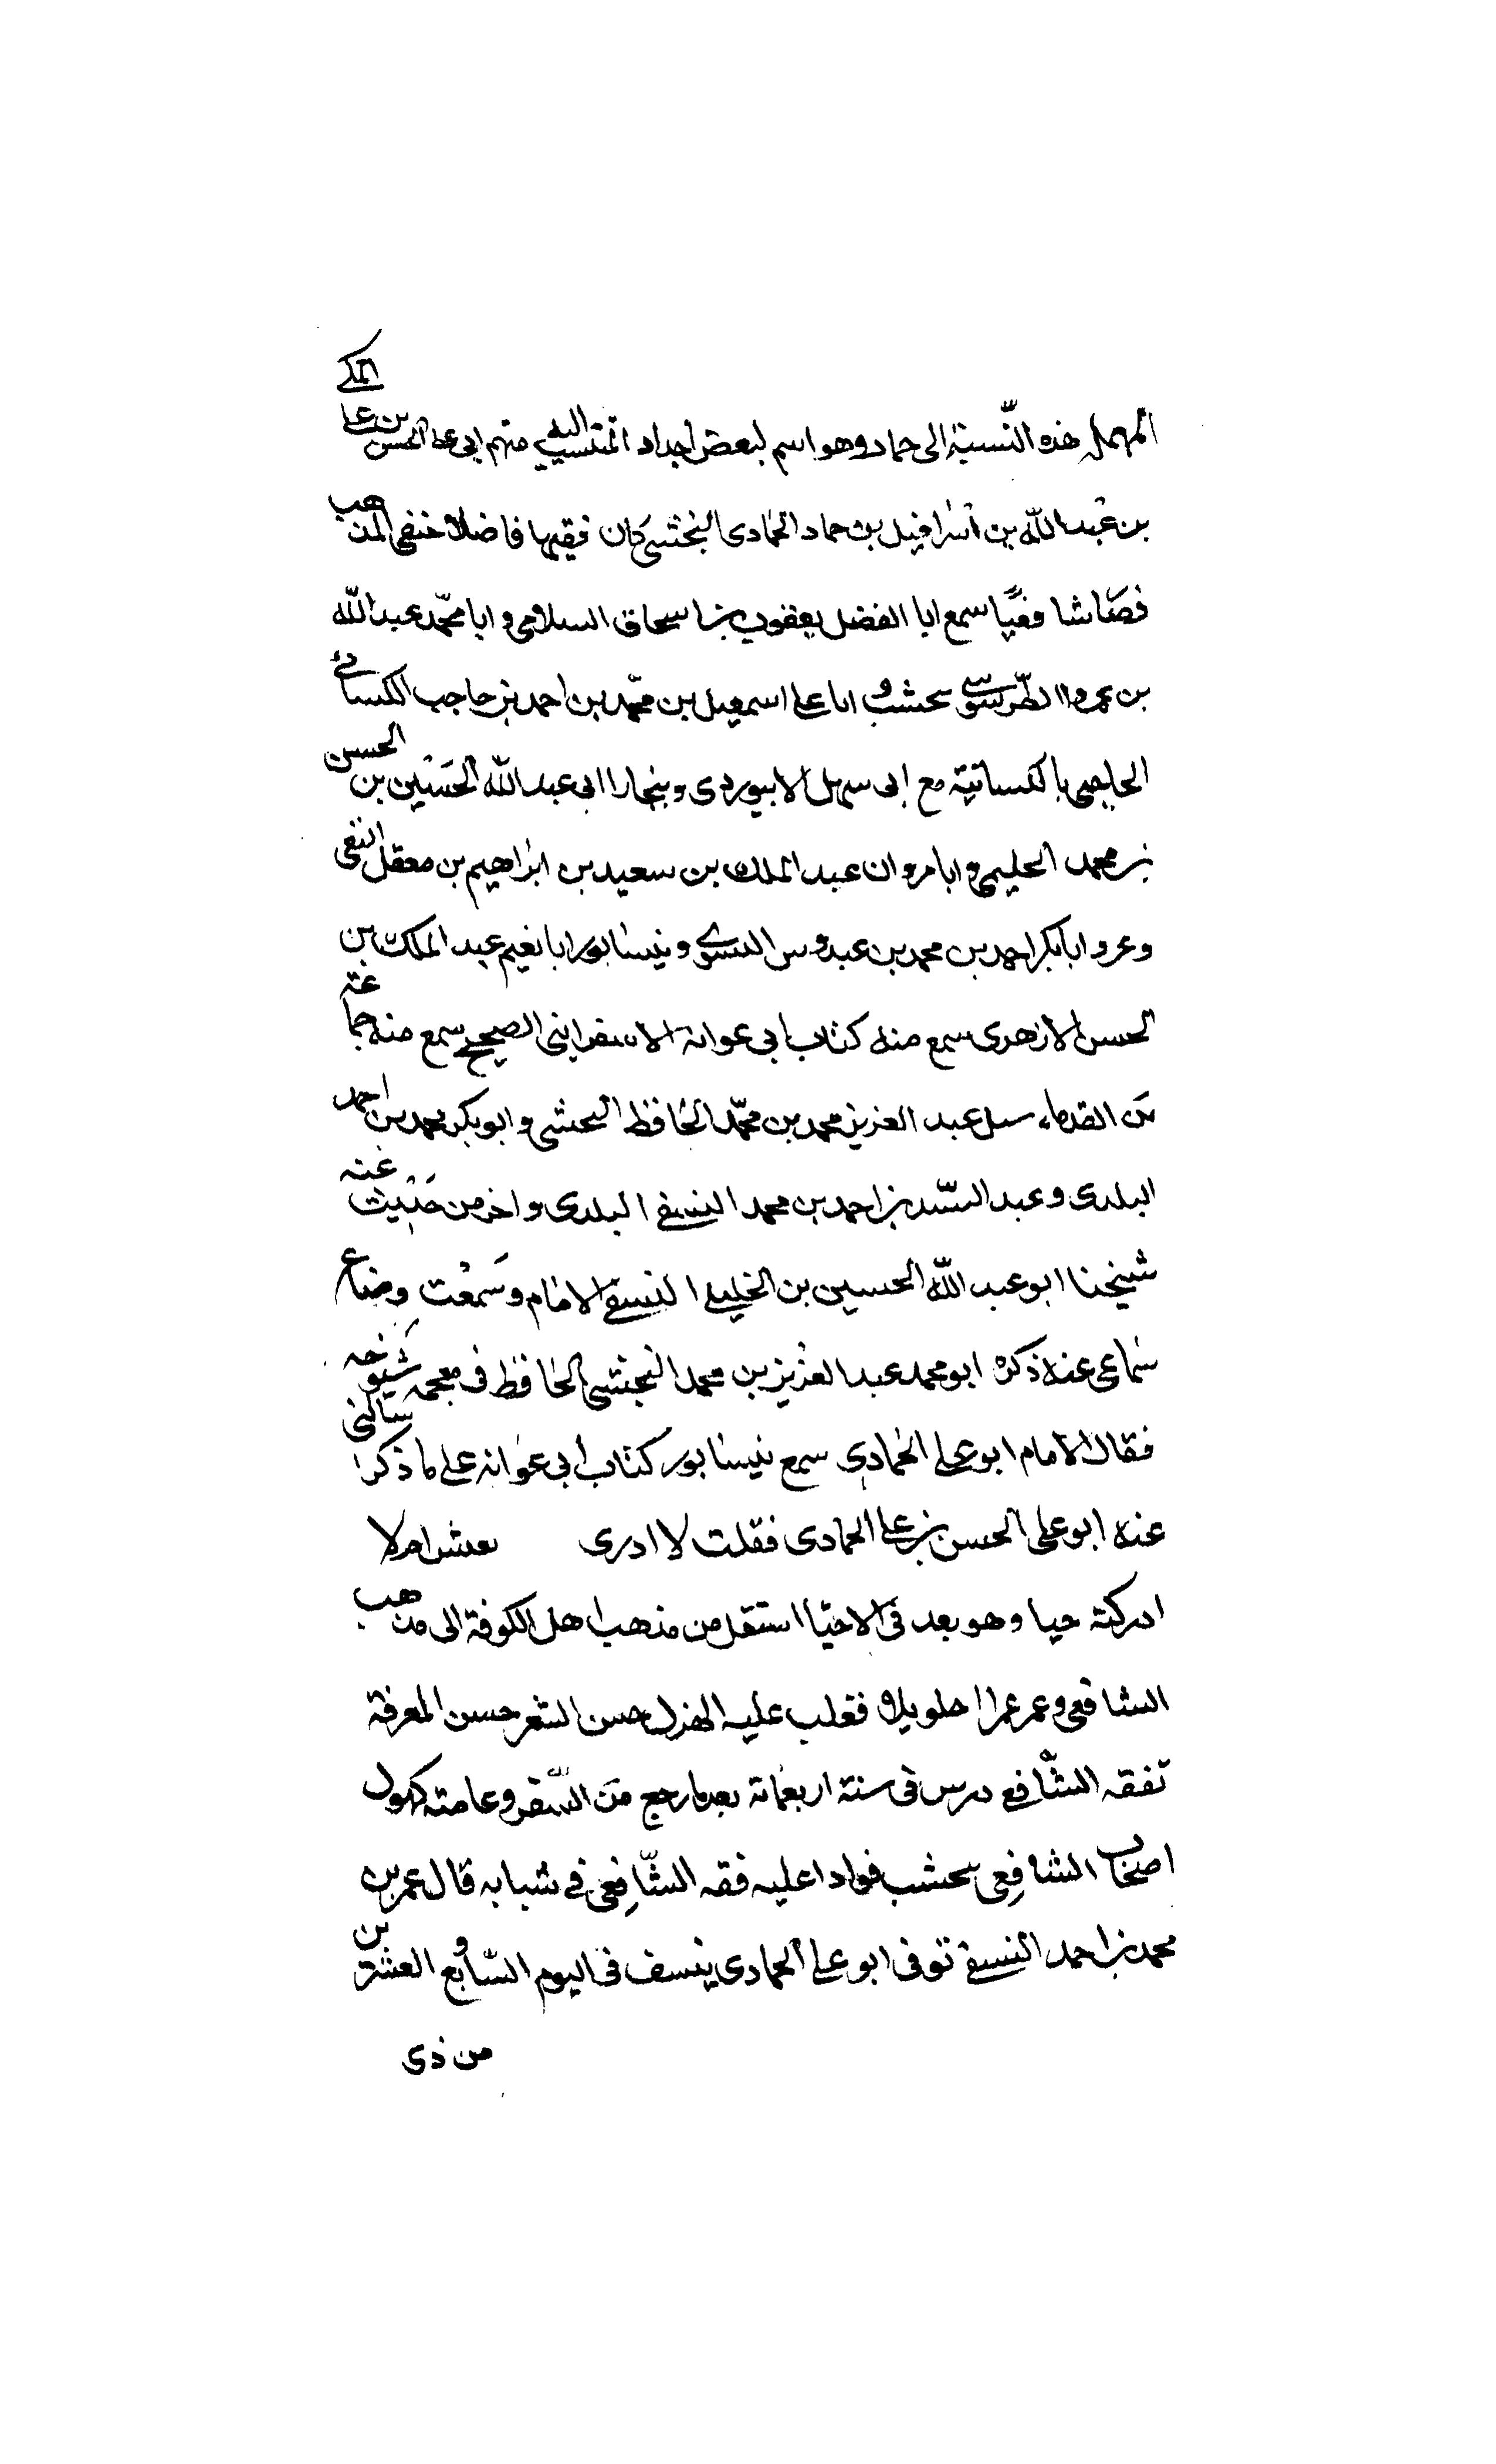 المهمل هذه النسبة الى حماد وهو اسم لبعض اجداد المنتسب اليه منهم ابى على الحسن بن على المكى
بن عبد الله بن اسرافيل بن حماد الحمادى النخشبى كان فقيها فاضلا حنفى المذهب
فصار شافعيا سمع ابا الفضل يعقوب بن اسحاق السلامى و ابا محمد عبد الله
بن عمرو الطرسوسى بنخشب و ابا على اسمعيل بن محمد بن احمد بن حاجب الكسانى
الحاجبى بالكسانية مع ابى سهل الابيوردى و بنجارا ابى عبد الله الحسين بن الحسن
بن محمد الحليمى و ابا مروان عبد الملك بن سعيد بن ابراهيم بن معقل النسفى
و عرو ابا بكر احمد بن محمد بن عبدوس النسوى و نيسابور ابا نعيم عبد الملك بن
الحسن الازهرى سمع منه كتاب ابى عوانة الاسفراينى الصحيح سمع منه جماعته
من القدماء سل عبد العزيز محمد بن محمد الحافظ النخشبى و ابو بكر محمد بن احمد
البلدى و عبد السيد بن احمد بن محمد النسفى البلدى و اخر من حديث عنه
شيخنا ابو عبد الله الحسين بن الخليل النسفى الامام و سمعت وضاع
سماعى عنه ذكره ابو محمد عبد العزيز بن محمد النخشبى الحافظ فى معجم شيوخه
فقال الامام ابو على الحمادى سمع نيسابور كتاب أبى عوانه على ما ذكر سالنى
عنه ابو على الحسن بن على الحمادى فقلت لا ادرى يعيش ام لا
ادركته حيا و هو بعد فى الاحيا استقل من مذهب اهل الكوفة الى مذهب
الشافعى و عمر عمرا طويلا فغلب عليه الهزل حسن الشعر حسن المعرفة
تفقه الشافعى درس فى سنة اربعمائة بعد ما رجع من السفر و عامته كهول
اصحاب الشافعى بنخشب عليه فقه الشافعى فى شبابه قال عمر بن
محمد بن احمد النسفى توفى ابو على الحمادى بنسف فى اليوم السابع و العشرين
من ذى